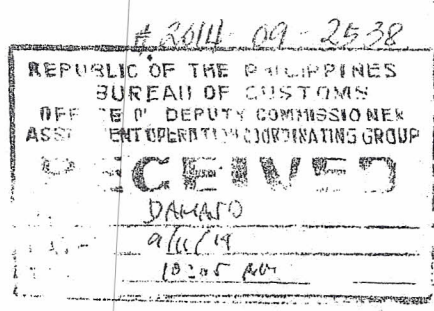 # 2014-09-2538
REPUBLIC OF THE PHILIPPINES
BUREAU OF CUSTOMS
OFFICE OF DEPUTY COMMISSIONER
ASSESSMENT OPERATION COORDINATING GROUP
RECEIVED
DAMASO
9/11/14